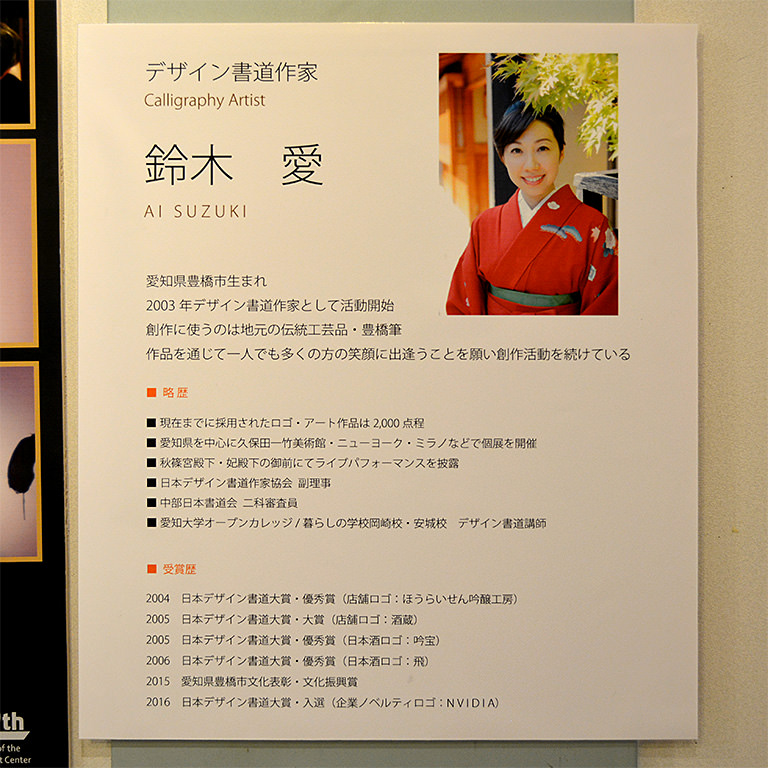 デザイン書道作家
Calligraphy Artist
鈴木 愛
AI SUZUKI
愛知県豊橋市生まれ
2003 年デザイン書道作家として活動開始
創作に使うのは地元の伝統工芸品・豊橋筆
作品を通じて一人でも多くの方の笑顔に出逢うことを願い創作活動を続けている
■ 略 歴
■ 現在までに採用されたロゴ・アート作品は 2,000 点程
■ 愛知県を中心に久保田一竹美術館・ニューヨーク・ミラノなどで個展を開催
■ 秋篠宮殿下・妃殿下の御前にてライブパフォーマンスを披露
■ 日本デザイン書道作家協会 副理事
■ 中部日本書道会 二科審査員
■ 愛知大学オープンカレッジ / 暮らしの学校岡崎校・安城校 デザイン書道講師
■ 受賞歴
2004 日本デザイン書道大賞・優秀賞（店舗ロゴ：ほうらいせん吟醸工房）
2005 日本デザイン書道大賞・大賞（店舗ロゴ：酒蔵）
2005 日本デザイン書道大賞・優秀賞（日本酒ロゴ：吟宝）
2006 日本デザイン書道大賞・優秀賞（日本酒ロゴ：飛）
2015 愛知県豊橋市文化表彰・文化振興賞
2016 日本デザイン書道大賞・入選（企業ノベルティロゴ：NVIDIA）
th
of the
t Center